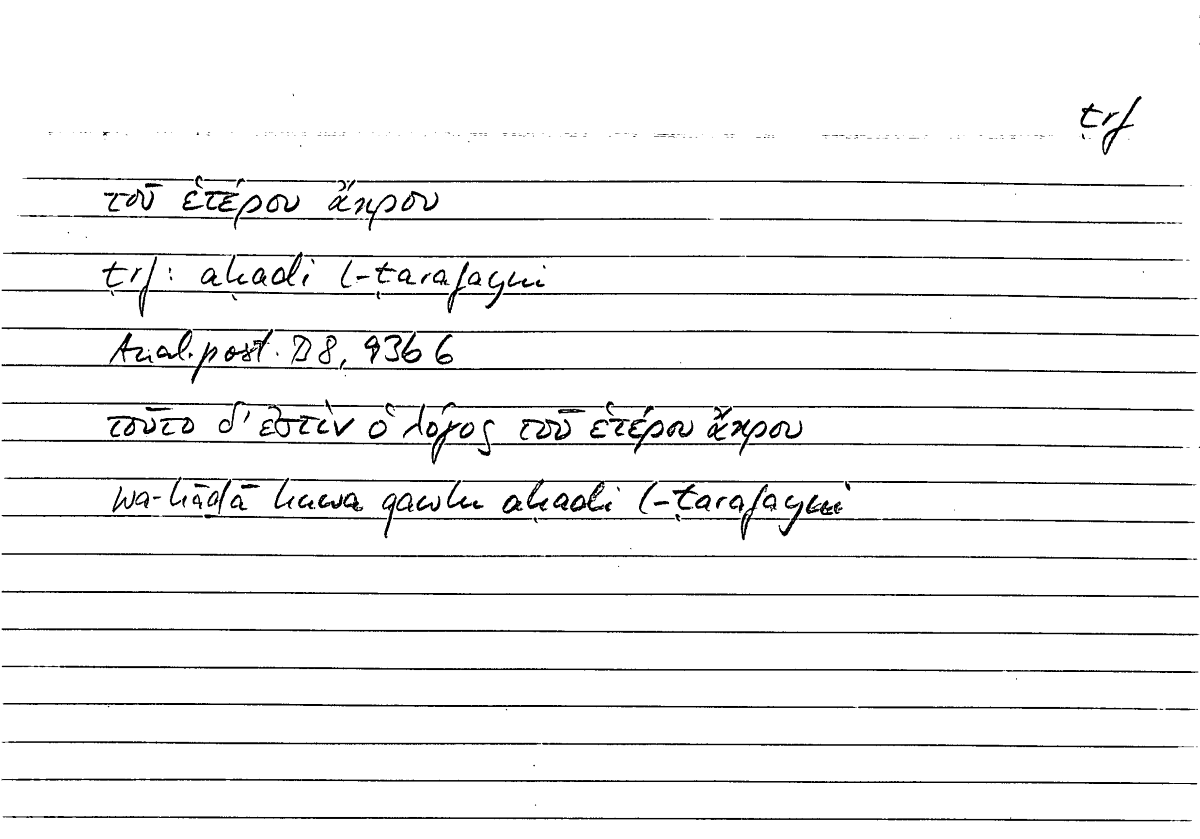 ṭrf
τοῦ ἑτέρου ἄκρου
ṭrf: aḥadi l-ṭarafayni
Anal. post. B 8, 93b 6
τοῦτο δ' ἐστὶν ὁ λόγος τοῦ ἑτέρου ἄκρου
wa-hāḏā huwa qawlu aḥadi l-ṭarafayni